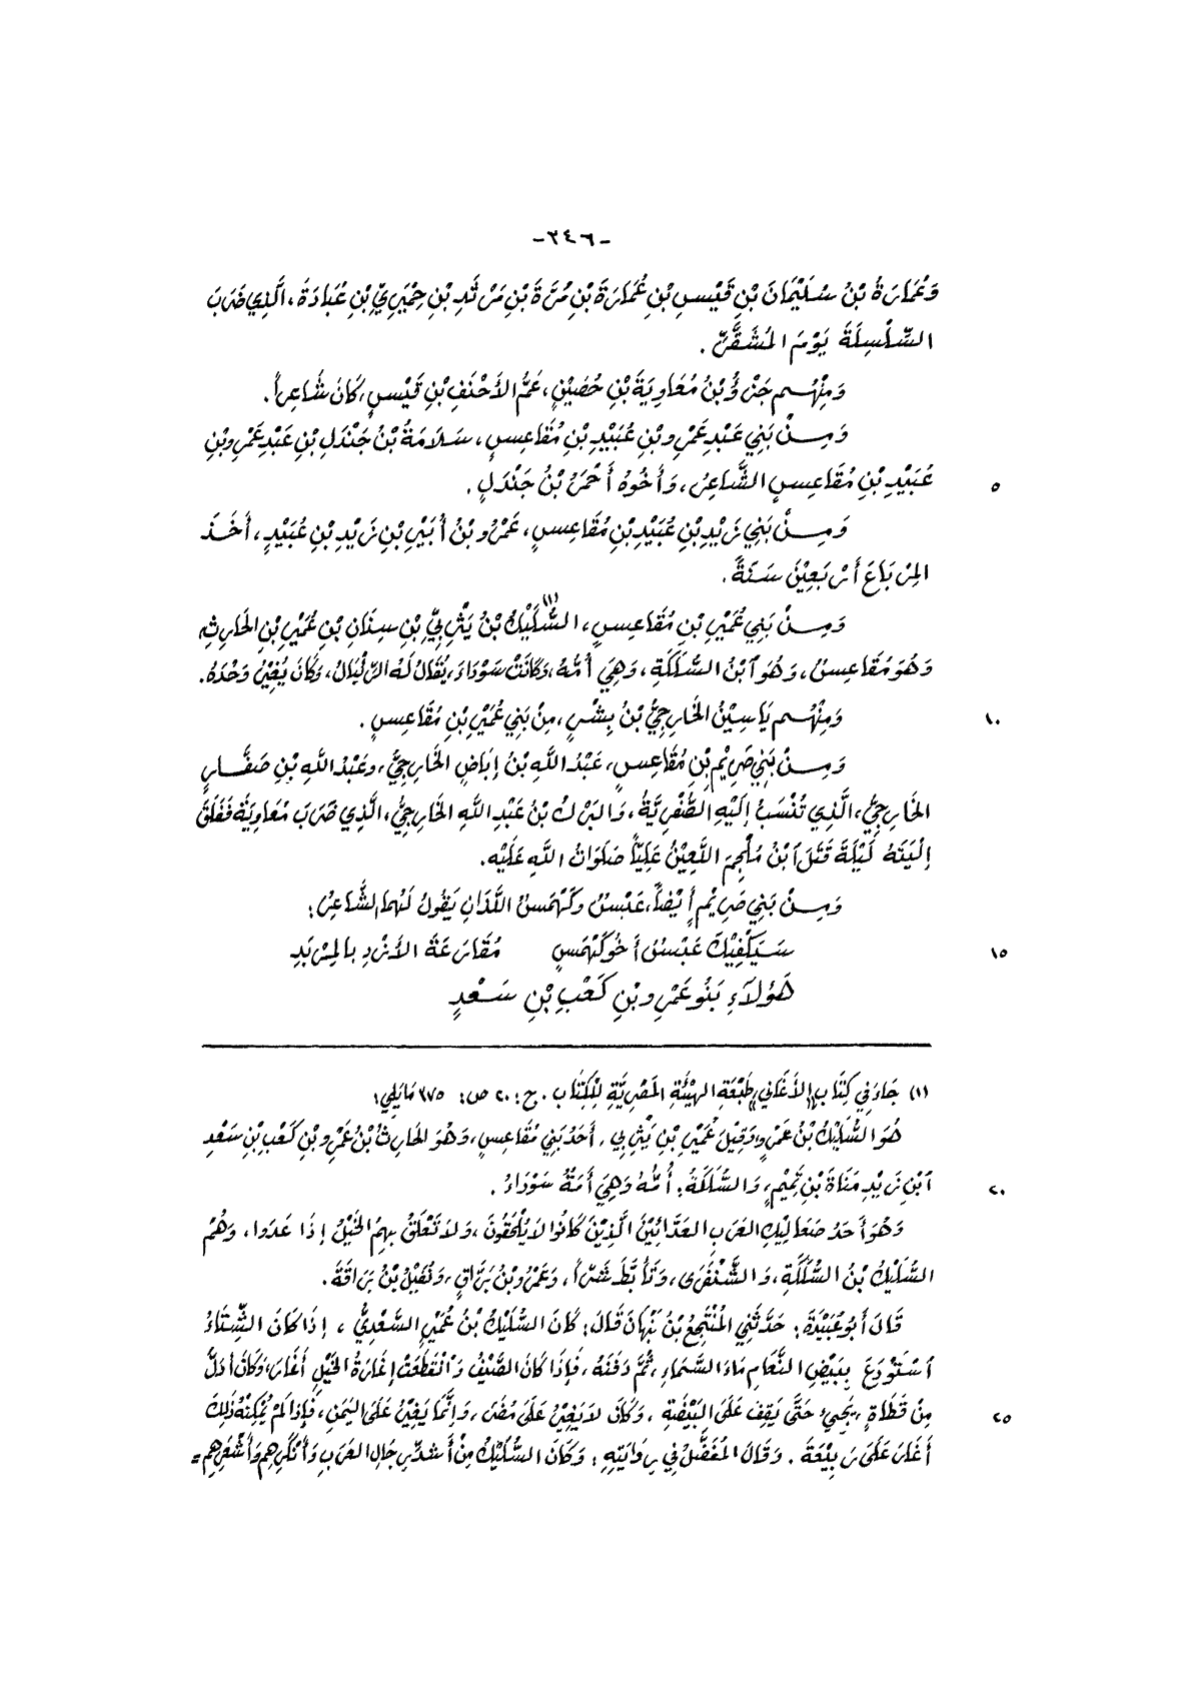 -٢٤٦-
وَعُمَارَةُ بْنُ سُلَيْمَانَ بْنِ قَيْسِ بْنِ عُمَارَةَ بْنِ مُرَّةَ بْنِ مَرْثَدِ بْنِ حِمْيَرِيِّ بْنِ عُبَادَةَ، الَّذِي ضَرَبَ
السِّلْسِلَةَ يَوْمَ المُشَقَّرِ.
وَمِنْهُم جَزْءُ بْنُ مُعَاوِيَةَ بْنِ حُصَيْنٍ، عَمُّ الأَحْنَفِ بْنِ قَيْسٍ، كَانَ شَاعِراً.
وَمِنْ بَنِي عَبْدِ عَمْرِو بْنِ عُبَيْدِ بْنِ مُقَاعِسٍ، سَلَامَةُ بْنُ جَنْدَلِ بْنِ عَبْدِ عَمْرِو بْنِ
عُبَيْدِ بْنِ مُقَاعِسٍ الشَّاعِرُ، وَأَخُوهُ أَحْمَرُ بْنُ جَنْدَلٍ.
٥
وَمِنْ بَنِي زَيْدِ بْنِ عُبَيْدِ بْنِ مُقَاعِسٍ، عَمْرُو بْنُ أُبَيْرِ بْنِ زَيْدِ بْنِ عُبَيْدٍ، أَخَذَ
المِرْبَاعَ أَرْبَعِيْنَ سَنَةً.
وَمِنْ بَنِي عُمَيْرِ بْنِ مُقَاعِسٍ، السُّلَيْكُ (١) بْنُ يَثْرِبِيِّ بْنِ سِنَانِ بْنِ عُمَيْرِ بْنِ الحَارِثِ
وَهُوَ مُقَاعِسُ، وَهُوَ ٱبْنُ السُّلَكَةِ، وَهِيَ أُمُّهُ، وَكَانَتْ سَوْدَاءَ، يُقَالُ لَهُ الرِّئْبَالُ، وَكَانَ يُغِيْرُ وَحْدَهُ.
وَمِنْهُم يَاسِيْنُ الخَارِجِيُّ بْنُ بِشْرٍ، مِنْ بَنِي عُمَيْرِ بْنِ مُقَاعِسٍ.
١٠
وَمِنْ بَنِي صَرِيْمِ بْنِ مُقَاعِسٍ، عَبْدُ اللَّهِ بْنُ إِبَاضٍ الخَارِجِيُّ، وعَبْدُ اللَّهِ بْنِ صَفَّارٍ
الخَارِجِيُّ، الَّذِي تُنْسَبُ إِلَيْهِ الصُّفْرِيَّةُ، وَالبَرْكُ بْنُ عَبْدِ اللَّهِ الخَارِجِيُّ، الَّذِي ضَرَبَ مُعَاوِيَةَ فَفَلَقَ
إِلْيَتَهُ لَيْلَةَ قَتَلَ ٱبْنُ مُلْجِمَ اللَّعِيْنُ عَلِيّاً صَلَوَاتُ اللَّهِ عَلَيْه.
وَمِنْ بَنِي صَرِيْمٍ أَيْضاً، عَبْسُ وكَهْمَسُ اللَّذَانِ يَقُولُ لَهُمَا الشَّاعِرُ:
سَيَكْفِيْكَ عَبْسُ أَخُو كَهْمَسٍ مُقَارَعَةَ الأَزْدِ بالمِرْبَدِ
١٥
هَؤُلَاءِ بَنُو عَمْرِو بْنِ كَعْبِ بْنِ سَعْدٍ
(١) جَاءَ فِي كِتَابِ «الأَغَاني» طَبْعَةِ الهَيْئَةِ المَصْرِيَّةِ لِلْكِتَاب. ج: ٢٠ ص: ٣٧٥ مَا يَلِي:
هُوَ السُّلَيْكُ بْنُ عَمْرٍو وَقِيْلَ عُمَيْرِ بْنِ يَثْرِبِي، أَحَدُ بَنِي مُقَاعِسٍ، وَهُوَ الحَارِثُ بْنُ عَمْرِو بْنِ كَعْبِ بْنِ سَعْدِ
ٱبْنِ زَيْدِ مَنَاةَ بْنِ تَمِيْمٍ، وَالسُّلَكَةُ: أُمُّهُ وَهِيَ أَمَةٌ سَوْدَاءُ.
٢٠
وَهُوَ أَحَدُ صَعَالِيْكِ العَرَبِ العَدَّائِيْنَ الَّذِيْنَ كَانُوا لَا يُلْحَقُونَ، وَلَا تَعْلَقُ بِهِمُ الخَيْلُ إِذَا عَدَوا، وَهُمُ
السُّلَيْكُ بْنُ السُّلَكَةِ، وَالشَّنْفَرَى، وَتَأَبَّطَ شَرّاً، وَعَمْرُو بْنُ بَرَّاقٍ، وَنُفَيْلُ بْنُ بَرَاقَةَ.
قَالَ أَبُو عُبَيْدَةَ: حَدَّثَنِي المُنْتَجِعُ بْنُ نَبْهَانَ قَالَ: كَانَ السُّلَيْكُ بْنُ عُمَيْرٍ السَّعْدِيُّ، إِذَا كَانَ الشِّتَاءُ
ٱسْتَوْدَعَ بِبَيْضِ النَّعَامِ مَاءَ السَّمَاءِ، ثُمَّ دَفَنَهُ، فَإِذَا كَانَ الصَّيْفُ وَٱنْقَطَعَتْ إِغَارَةُ الخَيْلِ أَغَارَ، وَكَانَ أَدَلَّ
مِنْ قَطَاةٍ، يَجِيءُ حَتَّى يَقِفَ عَلَى البَيْضَةِ، وَكَانَ لَا يَغِيْرُ عَلَى مُضَرَ، وَإِنَّمَا يَغِيْرُ عَلَى اليَمَنِ، فَإِذَا لَمْ يُمْكِنْهُ ذَلِكَ
٢٥
أَغَارَ عَلَى رَبِيْعَةَ. وَقَالَ المُفَضَّلُ فِي رِوَايَتِهِ: وَكَانَ السُّلَيْكُ مِنْ أَشَدِّ رِجَالِ العَرَبِ وَأَنْكَرِهِم وَأَشْعَرِهِم =